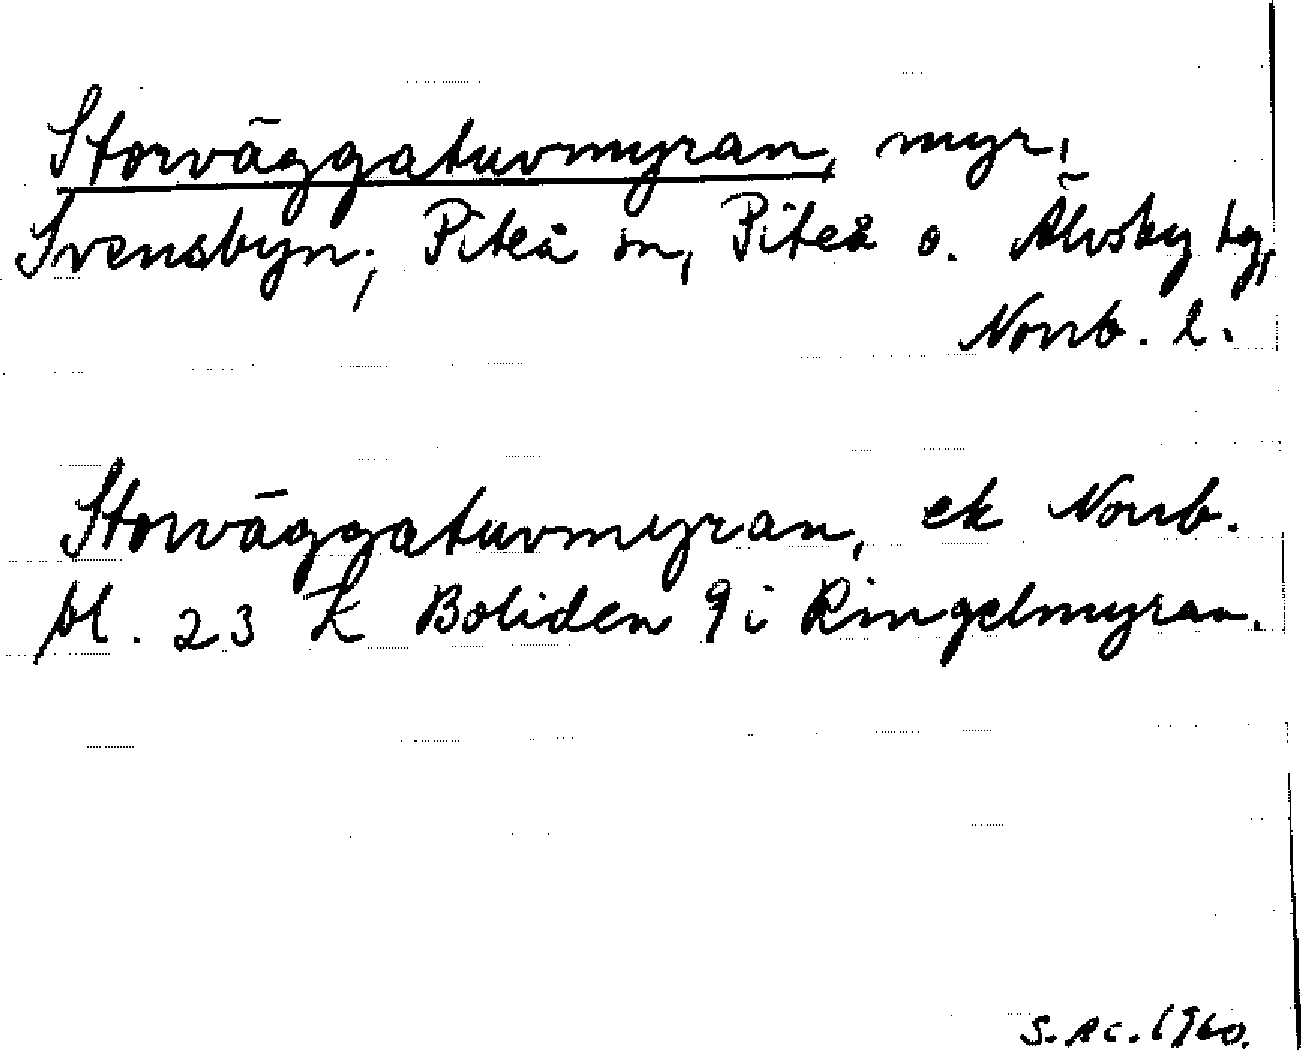 Storväggatuvmyran, myr,
Svensbyn; Piteå sn, Piteå o. Älvsby tg,
Norrb. l.
Storväggatuvmyran, ek Norrb.
bl. 23 K Boliden 9 i Ringelmyran.
S. Ac. 1960.